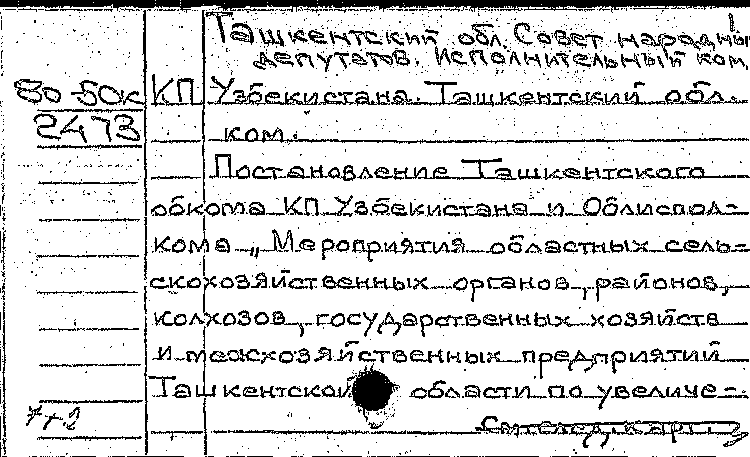 1
Ташкентский обл. Совет народны
депутатов. Исполнительный ком.
80-50к КП Узбекистана. Ташкентский обл.
2473 ком.
Постановление Ташкентского
обкома КП Узбекистана и Облиспол-
кома „Мероприятия областных сель-
скохозяйственных органов, районов,
колхозов, государственных хозяйств
и межхозяйственных предприятий
Ташкентской области по увеличе-
См. след. карт.